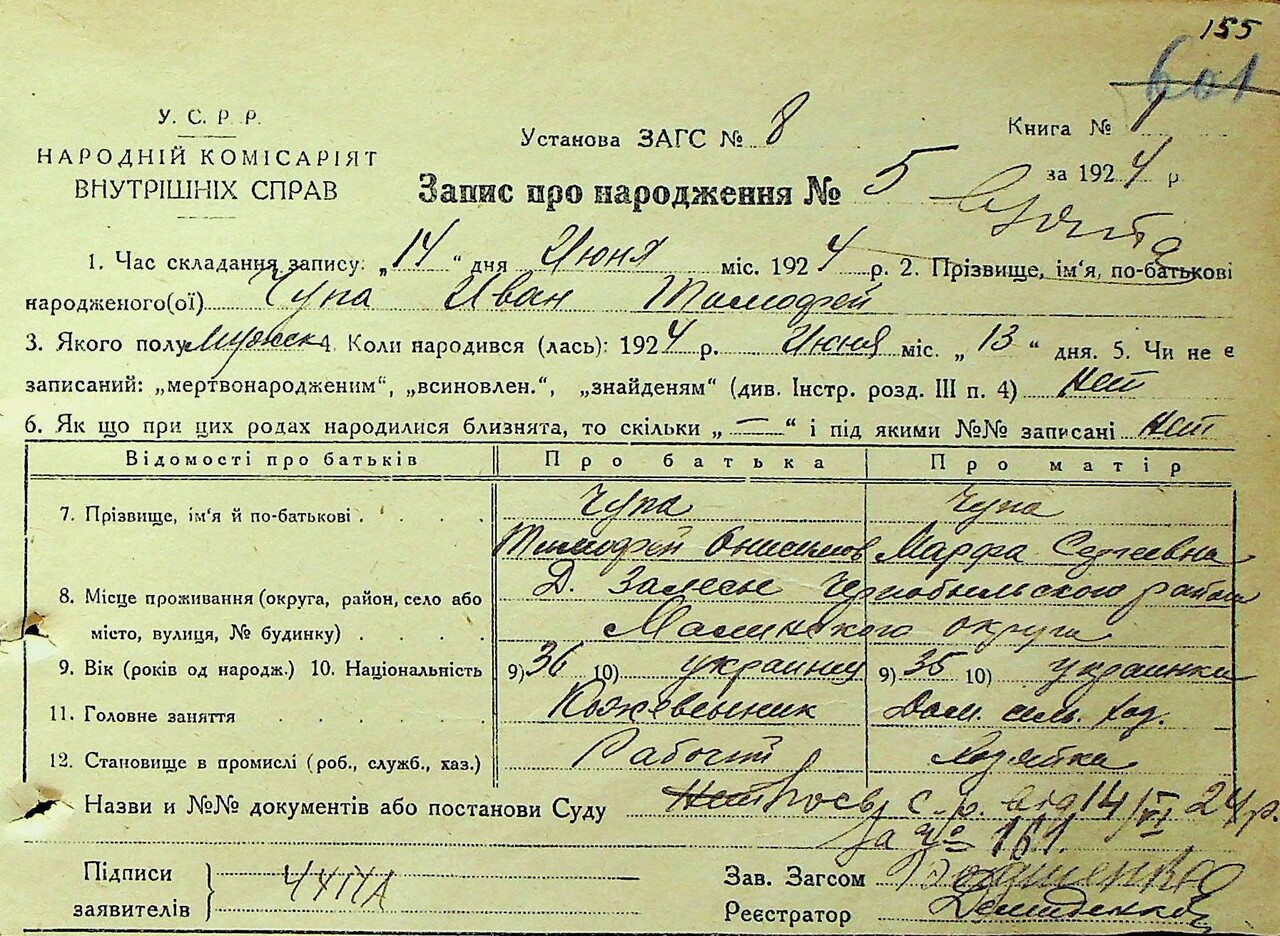 155
601
У. С. Р. Р.
НАРОДНІЙ КОМІСАРІЯТ
ВНУТРІШНІХ СПРАВ
Установа ЗАГС № 8
Книга № 1
за 1924 р.
Запис про народження № 5
1. Час складання запису: „14“ дня Июня міс. 1924 р. 2. Прізвище, ім‘я, по-батькові
народженого(ої) Чупа Иван Тимофей
3. Якого полу Мужск 4. Коли народився (лась): 1924 р. Июня міс. „13“ дня. 5. Чи не є
записаний: „мертвонародженим“, „всиновлен.“, „знайденям“ (див. Інстр. розд. III п. 4) Нет
6. Як що при цих родах народилися близнята, то скільки „—“ і під якими №№ записані Нет
Відомості про батьків Про батька Про матір
7. Прізвище, ім‘я й по-батькові . . . . Чупа Чупа
Тимофей Онисимов Марфа Сергеевна
8. Місце проживання (округа, район, село або Д. Залесье Чернобыльского района
місто, вулиця, № будинку) . . . . Малинского округа
9. Вік (років од народж.) 10. Національність 9) 36 10) украинец 9) 35 10) украинка
11. Головне заняття . . . . . Кожевенник Дом. сель. хоз.
12. Становище в промислі (роб., служб., хаз.) Рабочий хозяйка
Назви и №№ документів або постанови Суду Нет с.р. від 14/VI 24 р.
за № 161.
Підписи
заявителів
Зав. Загсом
Реєстратор Демиденко